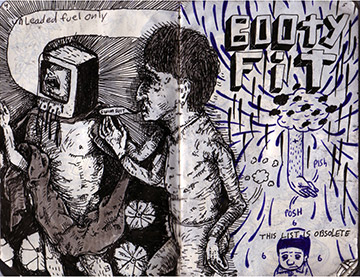 Leaded fuel only
BOOTY
FIT
POSH
THIS LIST IS OBSOLETE
6 6